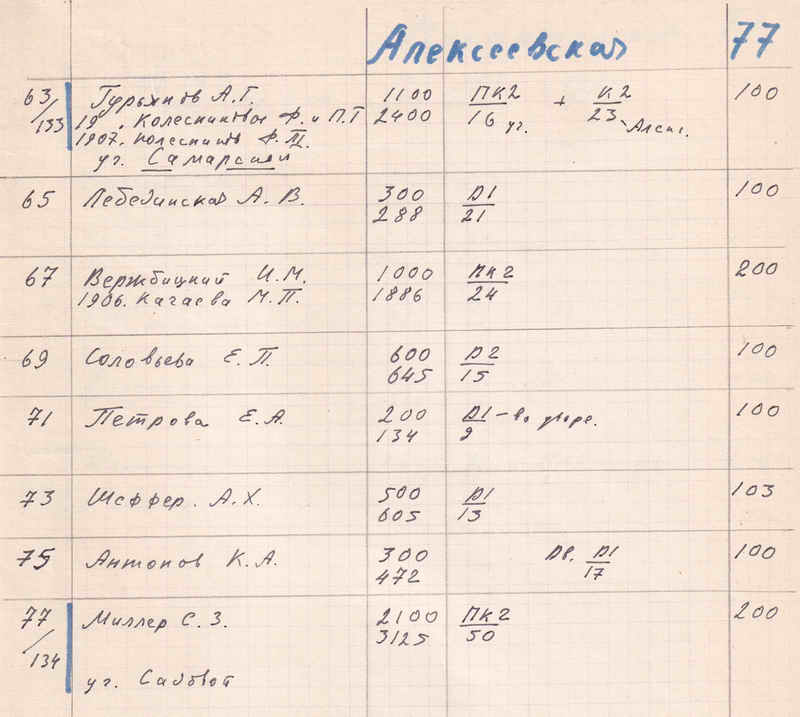 Алексеевская 77
63/133 Гурьянов А.Г. 1100 ПК2/16 уг. + К2/23 - Алекс. 100
19 , Колесникова Ф. и П.Т 2400
1907. Колесников Ф.
уг. Самарской
65 Лебединская А. В. 300 Д1/21 100
288
67 Вержбицкий И.М. 1000 ПК2/24 200
1906. Кагаева М.П. 1886
69 Соловьева Е. П. 600 Д2/15 100
645
71 Петрова Е.А. 200 Д1/9 - во дворе. 100
134
73 Шеффер. А.Х. 500 Д1/13 103
605
75 Антонов К.А. 300 Дв. Д1/17 100
472
77/134 Миллер С. З. 2100 ПК2/50 200
3125
уг. Садовой